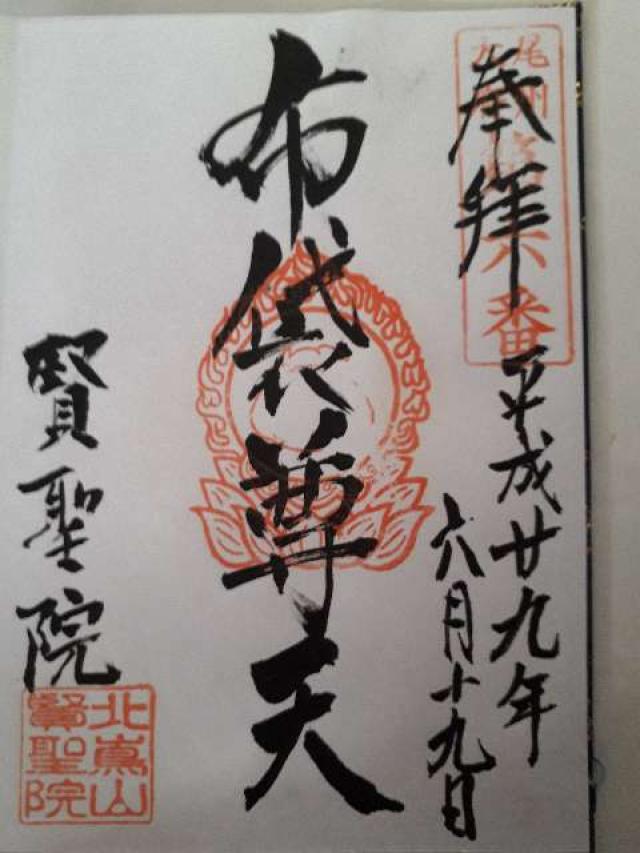 奉拝
六番
平成廿九年
六月十九日
布袋尊天
賢聖院
北嶌山
賢聖院